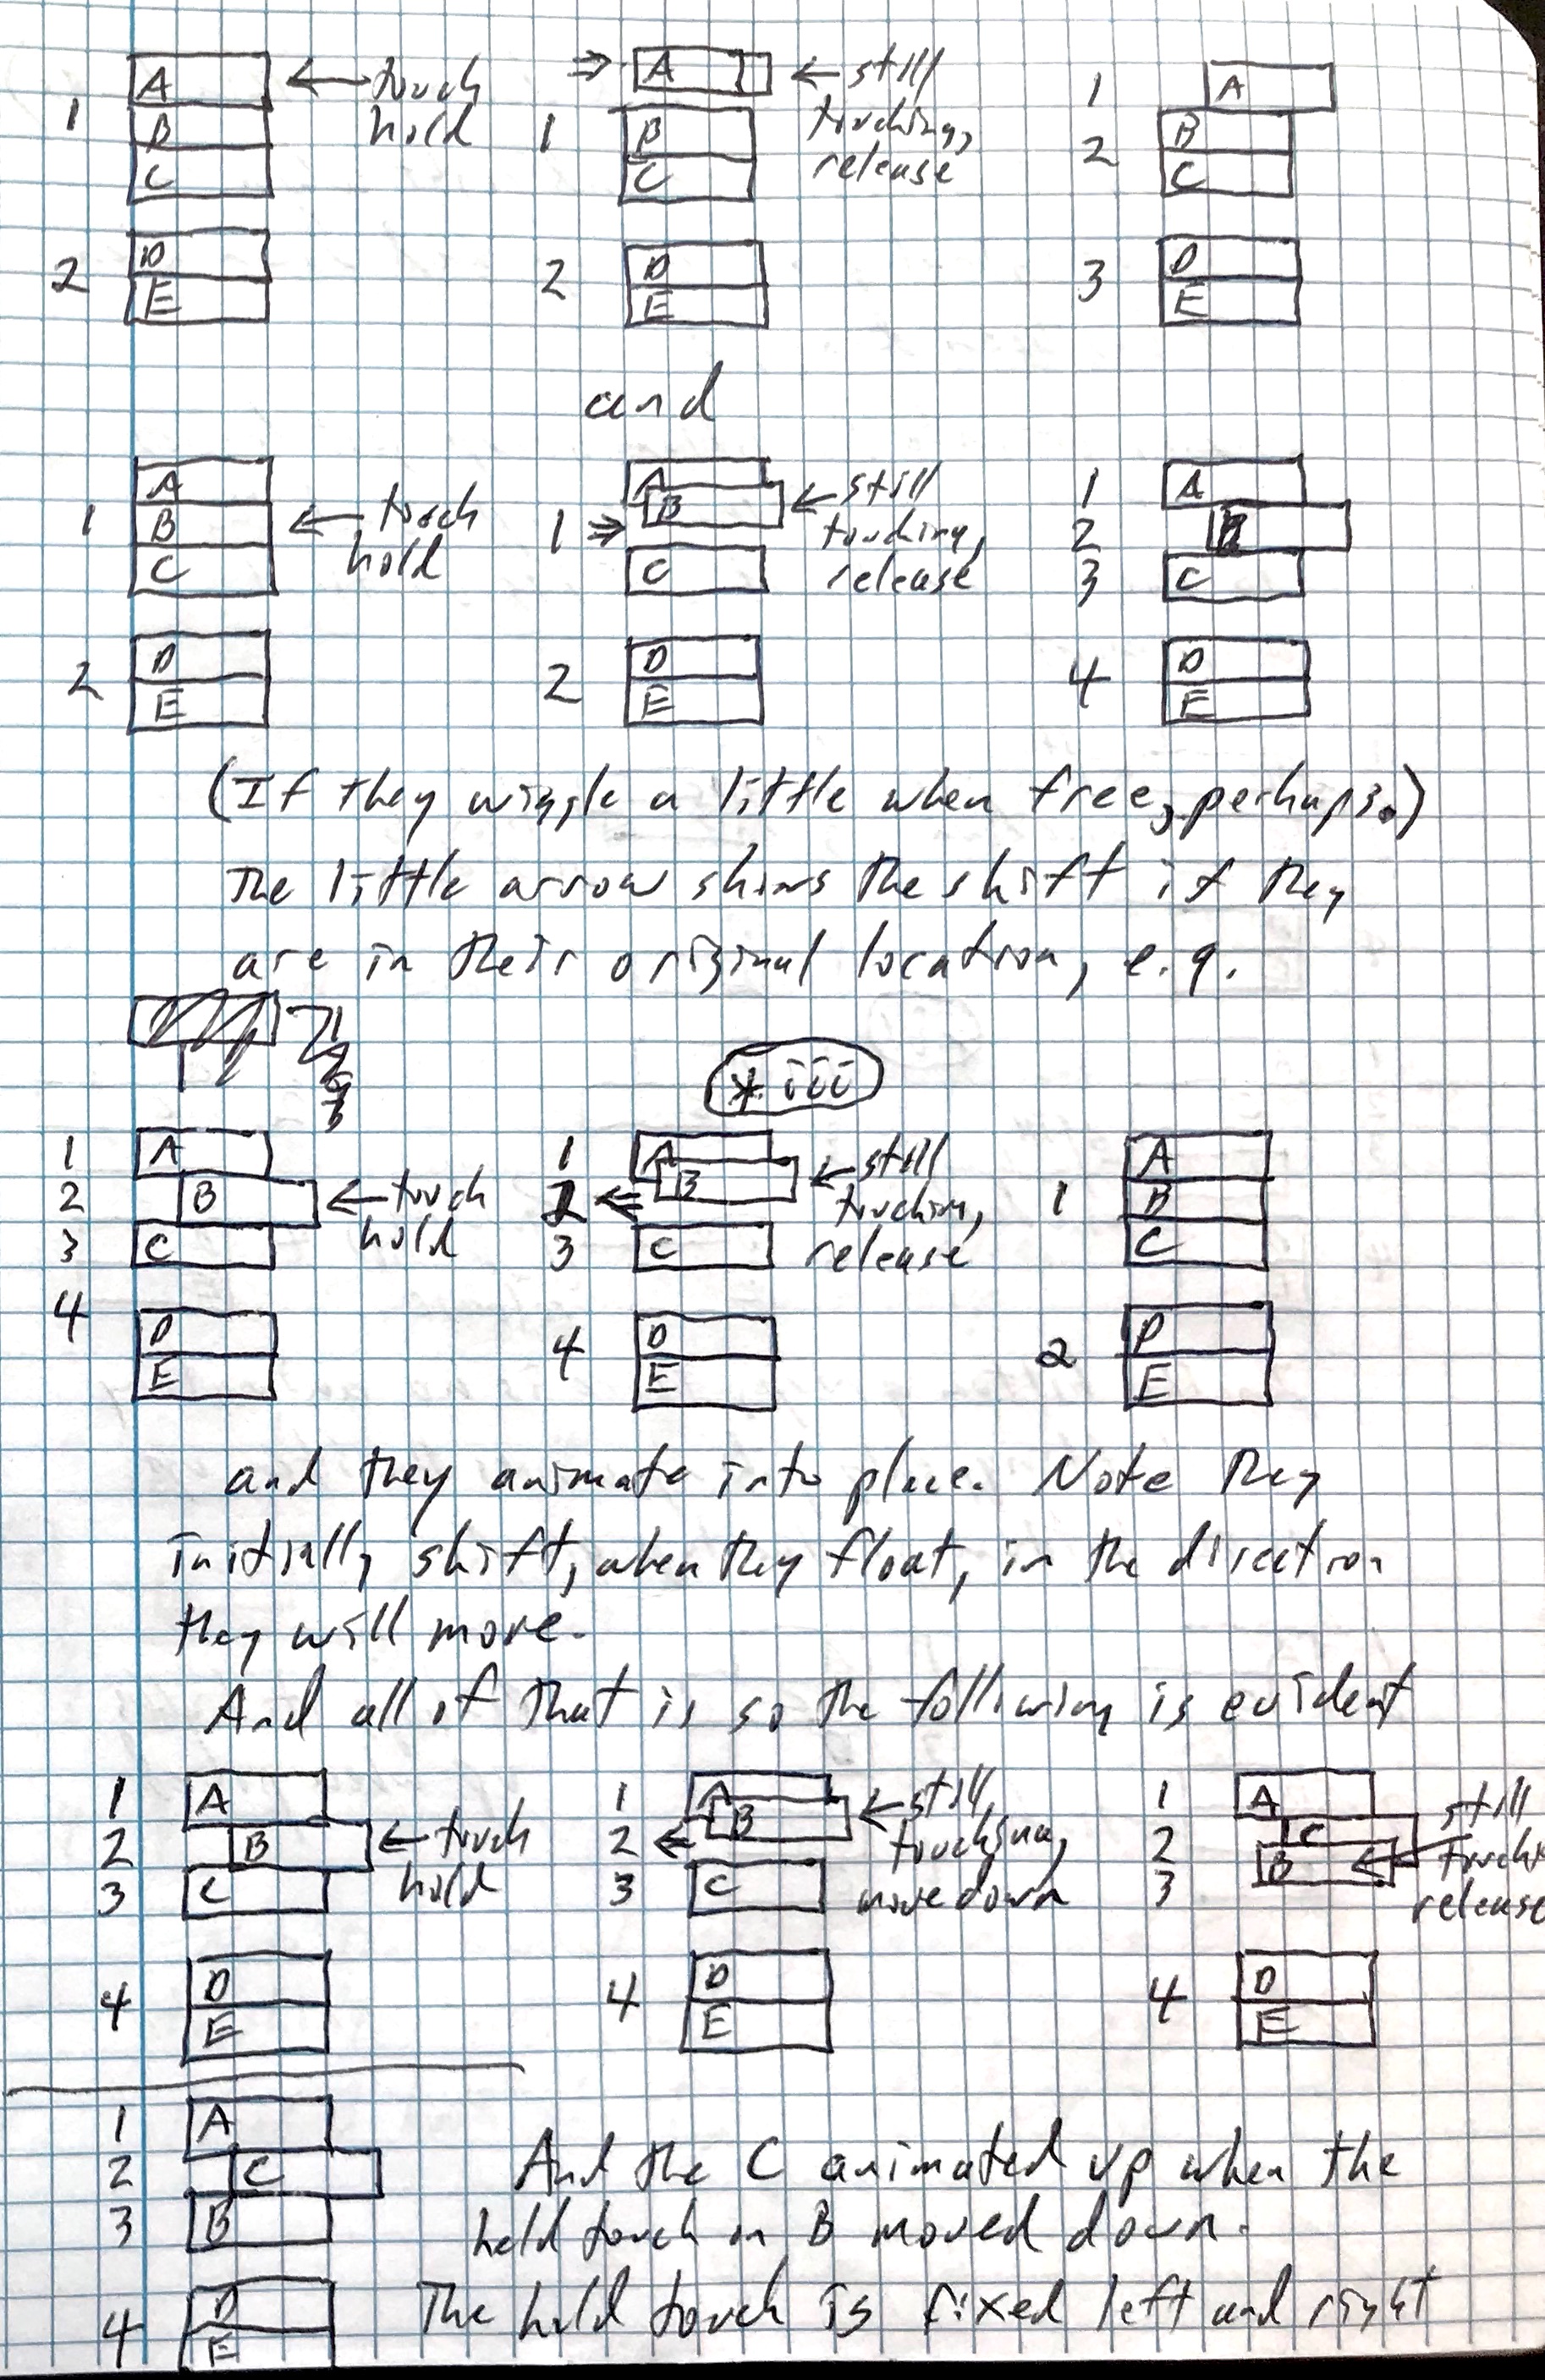 A ← touch
1 B hold
C
2 D
E
⇒ A ← still
1 B touching,
C release
2 D
E
1 A
2 B
C
3 D
E
and
A
1 B ← touch
C hold
2 D
E
A
B ← still
1 ⇒ touching,
C release
2 D
E
1 A
2 B
3 C
4 D
E
(If they wiggle a little when free, perhaps.)
The little arrow shows the shift if they
are in their original location, e.g.
* iii
1 A
2 B ← touch
3 C hold
4 D
E
1 A
B ← still
2 ⇐ touching,
3 C release
4 D
E
A
1 B
C
2 D
E
and they animate into place. Note they
initially shift, when they float, in the direction
they will move.
And all of that is so the following is evident
1 A
2 B ← touch
3 C hold
4 D
E
1 A
B ← still
2 ⇐ touching,
3 C move down
4 D
E
1 A
2 C still
B ←
3 release
4 D
E
1 A
2 C
3 B
4 D
E
And the C animated up when the
held touch on B moved down.
The hold touch is fixed left and right